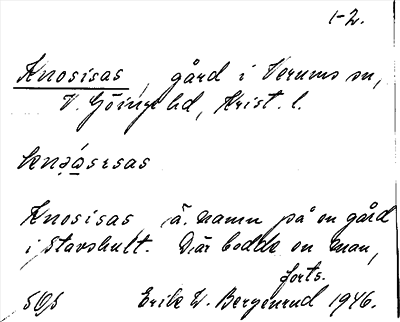 1-2.
Knosisas, gård i Verums sn,
V. Göinge hd, Krist. l.
Knosisas ä. namn på en gård
i Stavshult. Där bodde en man,
forts.
Erik W. Bergenrud 1946.